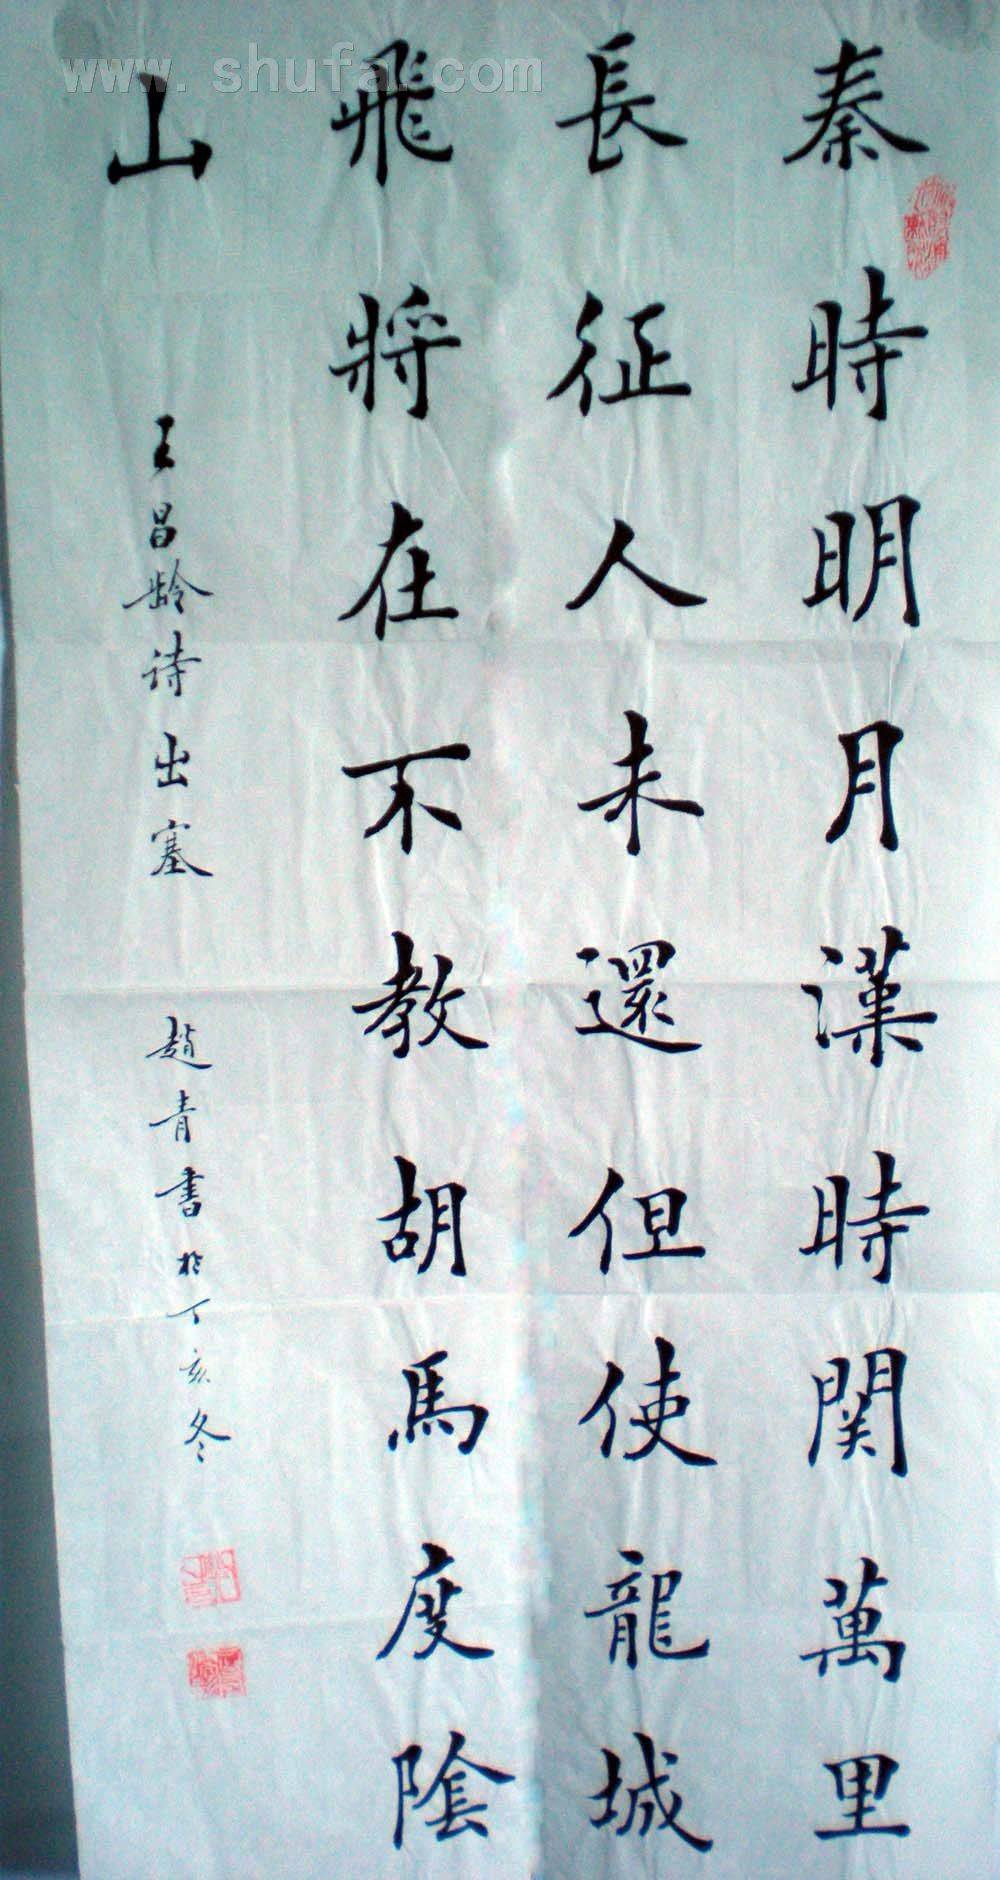 秦時明月漢時関萬里
長征人未還但使龍城
飛將在不教胡馬度陰
山
王昌龄诗出塞 趙青書於丁亥冬
www.shufa.com